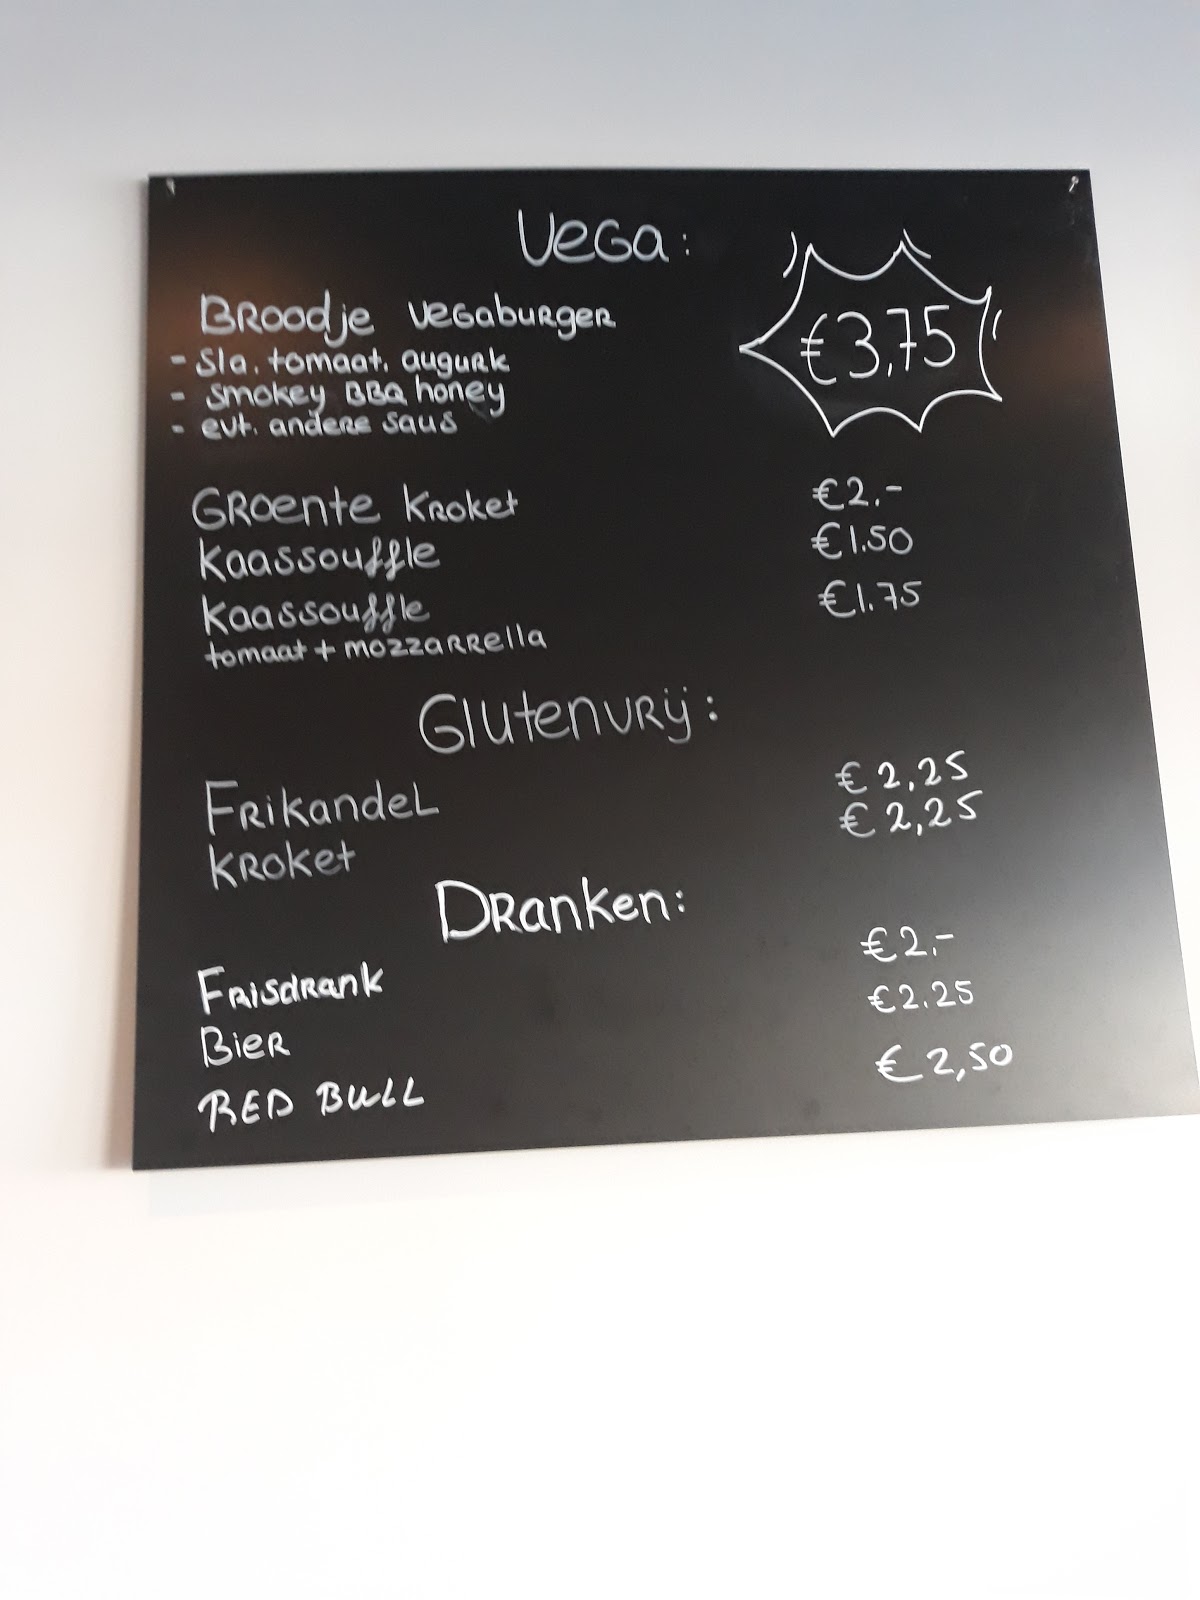 Vega:
Broodje vegaburger €3,75
- sla, tomaat, augurk
- smokey BBQ honey
- evt. andere saus
Groente kroket €2.-
Kaassouffle €1.50
Kaassouffle €1.75
tomaat + mozzarrella
Glutenvrij:
Frikandel €2,25
Kroket €2,25
Dranken:
Frisdrank €2.-
Bier €2.25
RED BULL €2,50